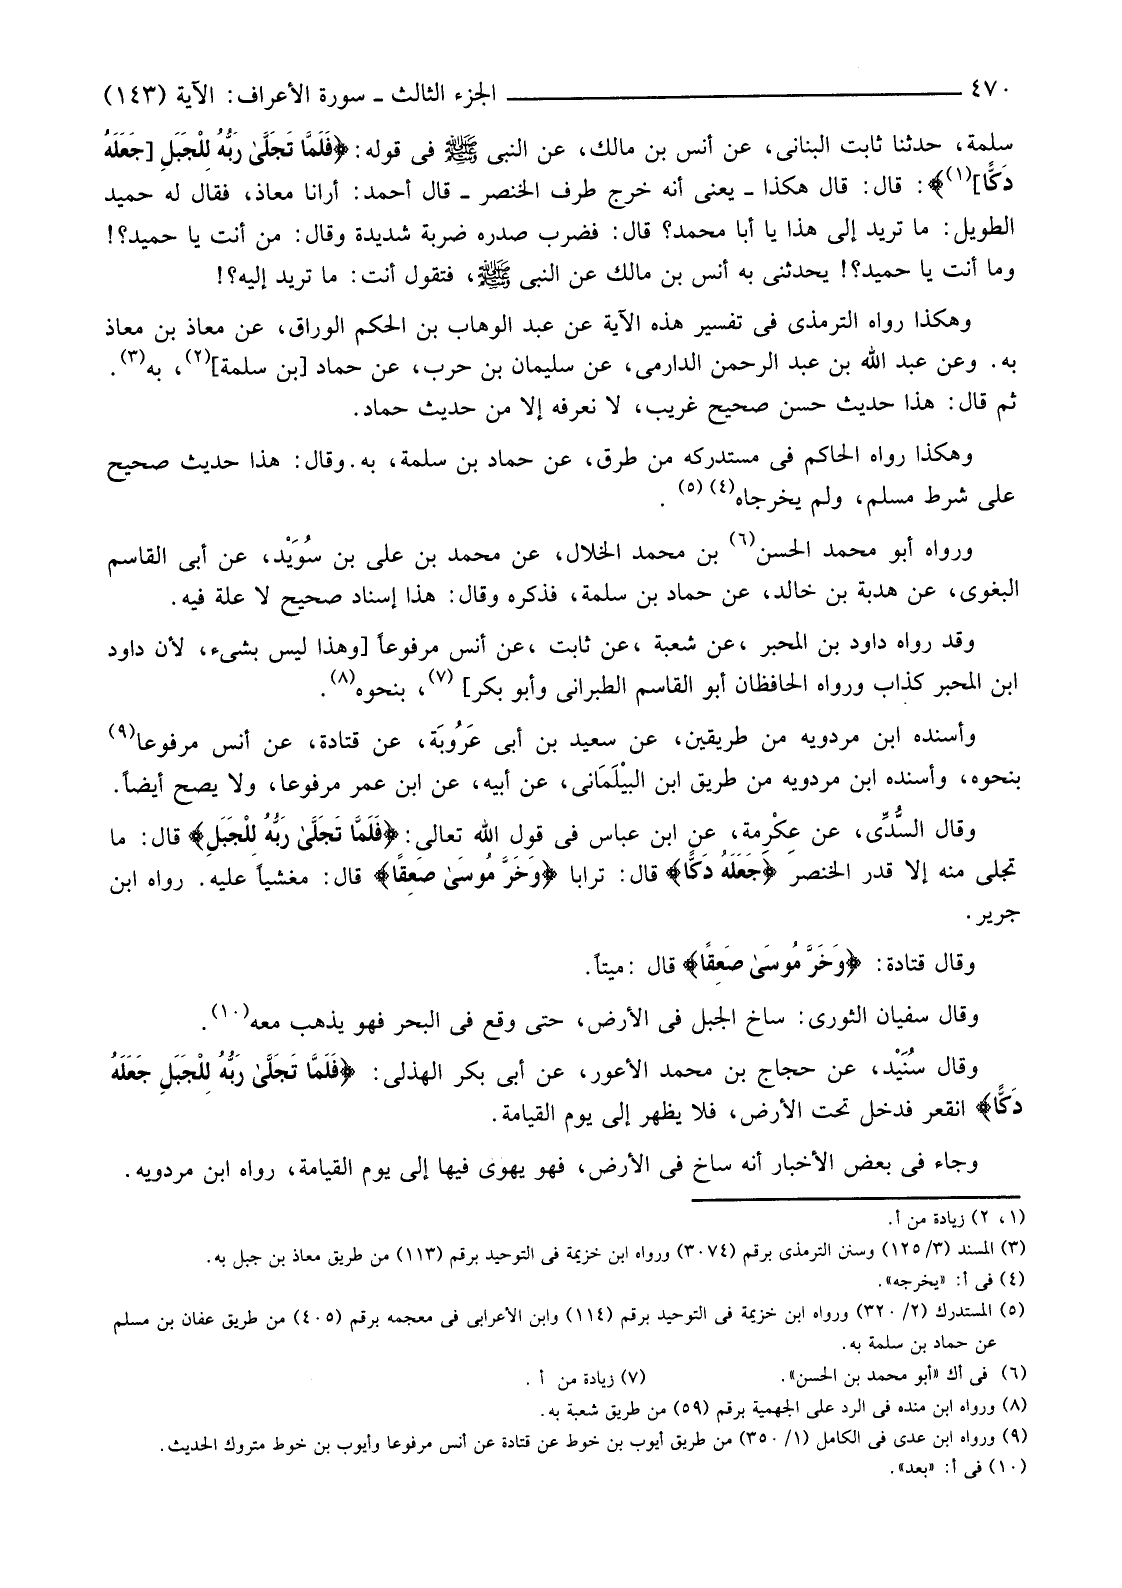 ٤٧٠ ــــــ الجزء الثالث ـ سورة الأعراف: الآية (١٤٣)
سلمة، حدثنا ثابت البنانى، عن أنس بن مالك، عن النبى ﷺ فى قوله: ﴿فَلَمَّا تَجَلَّىٰ رَبُّهُ لِلْجَبَلِ [جَعَلَهُ
دَكًّا](١)﴾: قال: قال هكذا ـ يعنى أنه خرج طرف الخنصر ـ قال أحمد: أرانا معاذ، فقال له حميد
الطويل: ما تريد إلى هذا يا أبا محمد؟ قال: فضرب صدره ضربة شديدة وقال: من أنت يا حميد؟!
وما أنت يا حميد؟! يحدثنى به أنس بن مالك عن النبى ﷺ، فتقول أنت: ما تريد إليه؟!
وهكذا رواه الترمذى فى تفسير هذه الآية عن عبد الوهاب بن الحكم الوراق، عن معاذ بن معاذ
به. وعن عبد الله بن عبد الرحمن الدارمى، عن سليمان بن حرب، عن حماد [بن سلمة](٢)، به(٣).
ثم قال: هذا حديث حسن صحيح غريب، لا نعرفه إلا من حديث حماد.
وهكذا رواه الحاكم فى مستدركه من طرق، عن حماد بن سلمة، به. وقال: هذا حديث صحيح
على شرط مسلم، ولم يخرجاه(٤) (٥).
ورواه أبو محمد الحسن(٦) بن محمد الخلال، عن محمد بن على بن سُوَيْد، عن أبى القاسم
البغوى، عن هدبة بن خالد، عن حماد بن سلمة، فذكره وقال: هذا إسناد صحيح لا علة فيه.
وقد رواه داود بن المحبر ،عن شعبة ،عن ثابت ،عن أنس مرفوعاً [وهذا ليس بشىء، لأن داود
ابن المحبر كذاب ورواه الحافظان أبو القاسم الطبرانى وأبو بكر] (٧)، بنحوه(٨).
وأسنده ابن مردويه من طريقين، عن سعيد بن أبى عَرُوبَة، عن قتادة، عن أنس مرفوعا(٩)
بنحوه، وأسنده ابن مردويه من طريق ابن البيْلَمَانى، عن أبيه، عن ابن عمر مرفوعا، ولا يصح أيضاً.
وقال السُّدِّى، عن عِكْرِمة، عن ابن عباس فى قول الله تعالى: ﴿فَلَمَّا تَجَلَّىٰ رَبُّهُ لِلْجَبَلِ﴾ قال: ما
تجلى منه إلا قدر الخنصر ﴿جَعَلَهُ دَكًّا﴾ قال: ترابا ﴿وَخَرَّ مُوسَىٰ صَعِقًا﴾ قال: مغشياً عليه. رواه ابن
جرير.
وقال قتادة: ﴿وَخَرَّ مُوسَىٰ صَعِقًا﴾ قال :ميتاً.
وقال سفيان الثورى: ساخ الجبل فى الأرض، حتى وقع فى البحر فهو يذهب معه(١٠).
وقال سُنَيْد، عن حجاج بن محمد الأعور، عن أبى بكر الهذلى: ﴿فَلَمَّا تَجَلَّىٰ رَبُّهُ لِلْجَبَلِ جَعَلَهُ
دَكًّا﴾ انقعر فدخل تحت الأرض، فلا يظهر إلى يوم القيامة.
وجاء فى بعض الأخبار أنه ساخ فى الأرض، فهو يهوى فيها إلى يوم القيامة، رواه ابن مردويه.
(١، ٢) زيادة من أ.
(٣) المسند (٣/ ١٢٥) وسنن الترمذى برقم (٣٠٧٤) ورواه ابن خزيمة فى التوحيد برقم (١١٣) من طريق معاذ بن جبل به.
(٤) فى أ: «يخرجه».
(٥) المستدرك (٢/ ٣٢٠) ورواه ابن خزيمة فى التوحيد برقم (١١٤) وابن الأعرابى فى معجمه برقم (٤٠٥) من طريق عفان بن مسلم
عن حماد بن سلمة به.
(٦) فى أك «أبو محمد بن الحسن». (٧) زيادة من أ .
(٨) ورواه ابن منده فى الرد على الجهمية برقم (٥٩) من طريق شعبة به.
(٩) ورواه ابن عدى فى الكامل (١/ ٣٥٠) من طريق أيوب بن خوط عن قتادة عن أنس مرفوعا وأيوب بن خوط متروك الحديث.
(١٠) فى أ: «بعد».